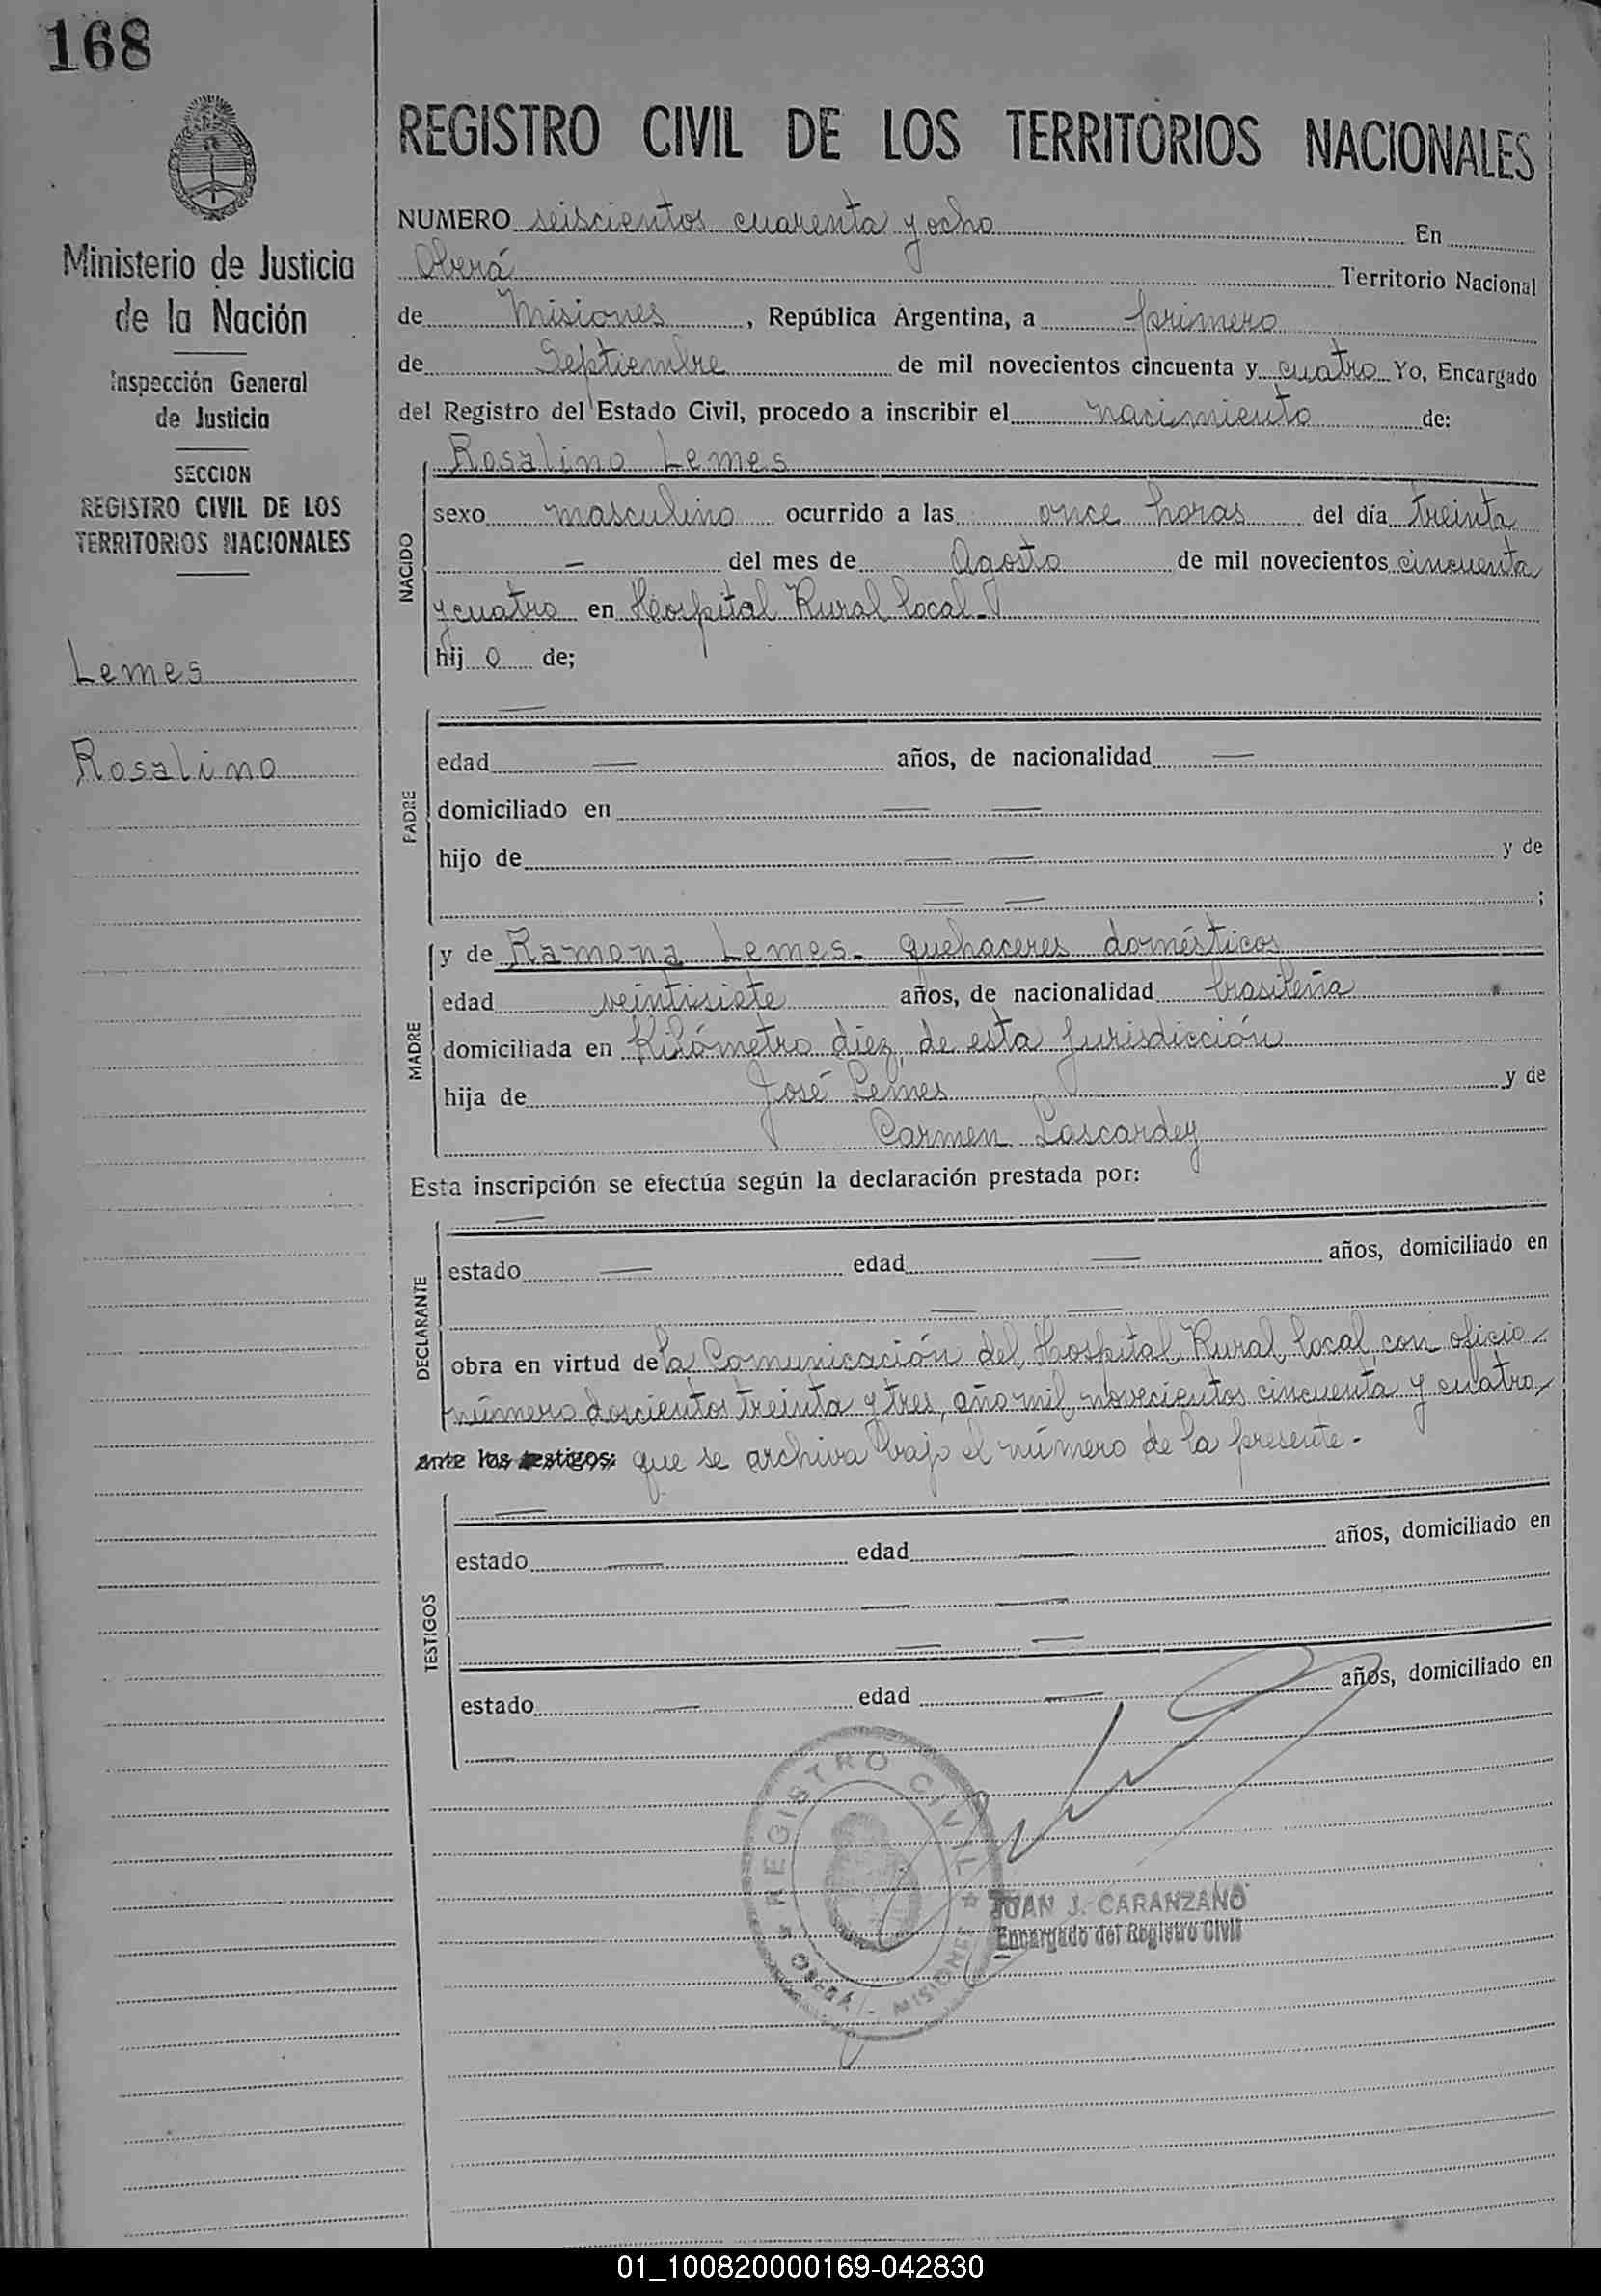 168
Ministerio de Justicia
de la Nación
Inspección General
de Justicia
SECCION
REGISTRO CIVIL DE LOS
TERRITORIOS NACIONALES
Lemes
Rosalino
REGISTRO CIVIL DE LOS TERRITORIOS NACIONALES
NUMERO seiscientos cuarenta y ocho En
Oberá Territorio Nacional
de Misiones, República Argentina, a primero
de Septiembre de mil novecientos cincuenta y cuatro Yo, Encargado
del Registro del Estado Civil, procedo a inscribir el nacimiento de:
Rosalino Lemes
NACIDO
sexo masculino ocurrido a las once horas del día treinta
— del mes de Agosto de mil novecientos cincuenta
y cuatro en Hospital Rural local.
hij o de;
PADRE
—
edad — años, de nacionalidad —
domiciliado en — —
hijo de — — y de
— — ;
MADRE
y de Ramona Lemes - quehaceres domésticos
edad veintisiete años, de nacionalidad brasileña
domiciliada en Kilómetro diez, de esta jurisdicción
hija de José Lemes y de
Carmen Lascardey
Esta inscripción se efectúa según la declaración prestada por:
DECLARANTE
—
estado — edad — años, domiciliado en
— —
obra en virtud de la Comunicación del Hospital Rural local con oficio
número doscientos treinta y tres, año mil novecientos cincuenta y cuatro,
ante los testigos: que se archiva bajo el número de la presente.
TESTIGOS
—
estado — edad — años, domiciliado en
— —
— —
estado — edad — años, domiciliado en
—
REGISTRO CIVIL
OBERÁ - MISIONES
JUAN J. CARANZANO
Encargado del Registro Civil
01_100820000169-042830